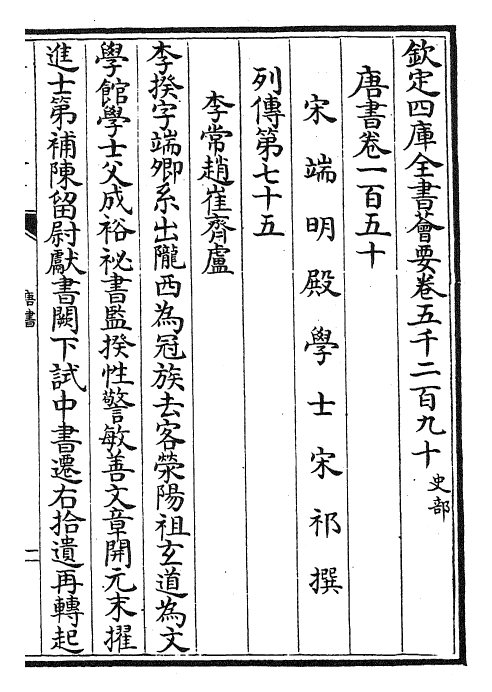 欽定四庫全書薈要卷五千二百九十 史部
唐書卷一百五十
宋端明殿學士宋祁撰
列傳第七十五
李常趙崔齊盧
李揆字端卿系出隴西為冠族去客滎陽祖玄道為文
學館學士父成裕祕書監揆性警敏善文章開元末擢
進士第補陳留尉獻書闕下試中書遷右拾遺再轉起
唐書